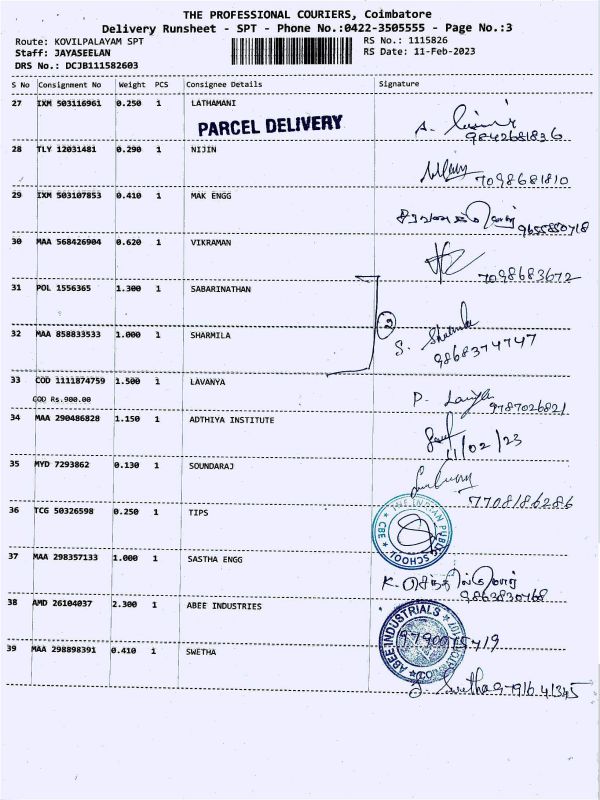 THE PROFESSIONAL COURIERS, Coimbatore
Delivery Runsheet - SPT - Phone No.:0422-3505555 - Page No.:3
Route: KOVILPALAYAM SPT RS No.: 1115826
Staff: JAYASEELAN RS Date: 11-Feb-2023
DRS No.: DCJB111582603
S No Consignment No Weight PCS Consignee Details Signature
27 IXM 503116961 0.250 1 LATHAMANI
PARCEL DELIVERY
A. 9842681836
28 TLY 12031481 0.290 1 NIJIN
7098681810
29 IXM 503107853 0.410 1 MAK ENGG
9655850718
30 MAA 568426904 0.620 1 VIKRAMAN
7098683672
31 POL 1556365 1.300 1 SABARINATHAN
32 MAA 858833533 1.000 1 SHARMILA
S. Sharmila
9868374747
33 COD 1111874759 1.500 1 LAVANYA
COD Rs.900.00
P. Lavanya 9787026821
34 MAA 290486828 1.150 1 ADTHIYA INSTITUTE
11/02/23
35 MYD 7293862 0.130 1 SOUNDARAJ
7708186286
36 TCG 50326598 0.250 1 TIPS
THE INDIAN PUBLIC SCHOOL * CBE *
37 MAA 298357133 1.000 1 SASTHA ENGG
K. செந்தில்குமார்
9863830768
38 AMD 26104037 2.300 1 ABEE INDUSTRIES
ABEE INDUSTRIALS
39 MAA 298898391 0.410 1 SWETHA
J. Swetha 9791641345